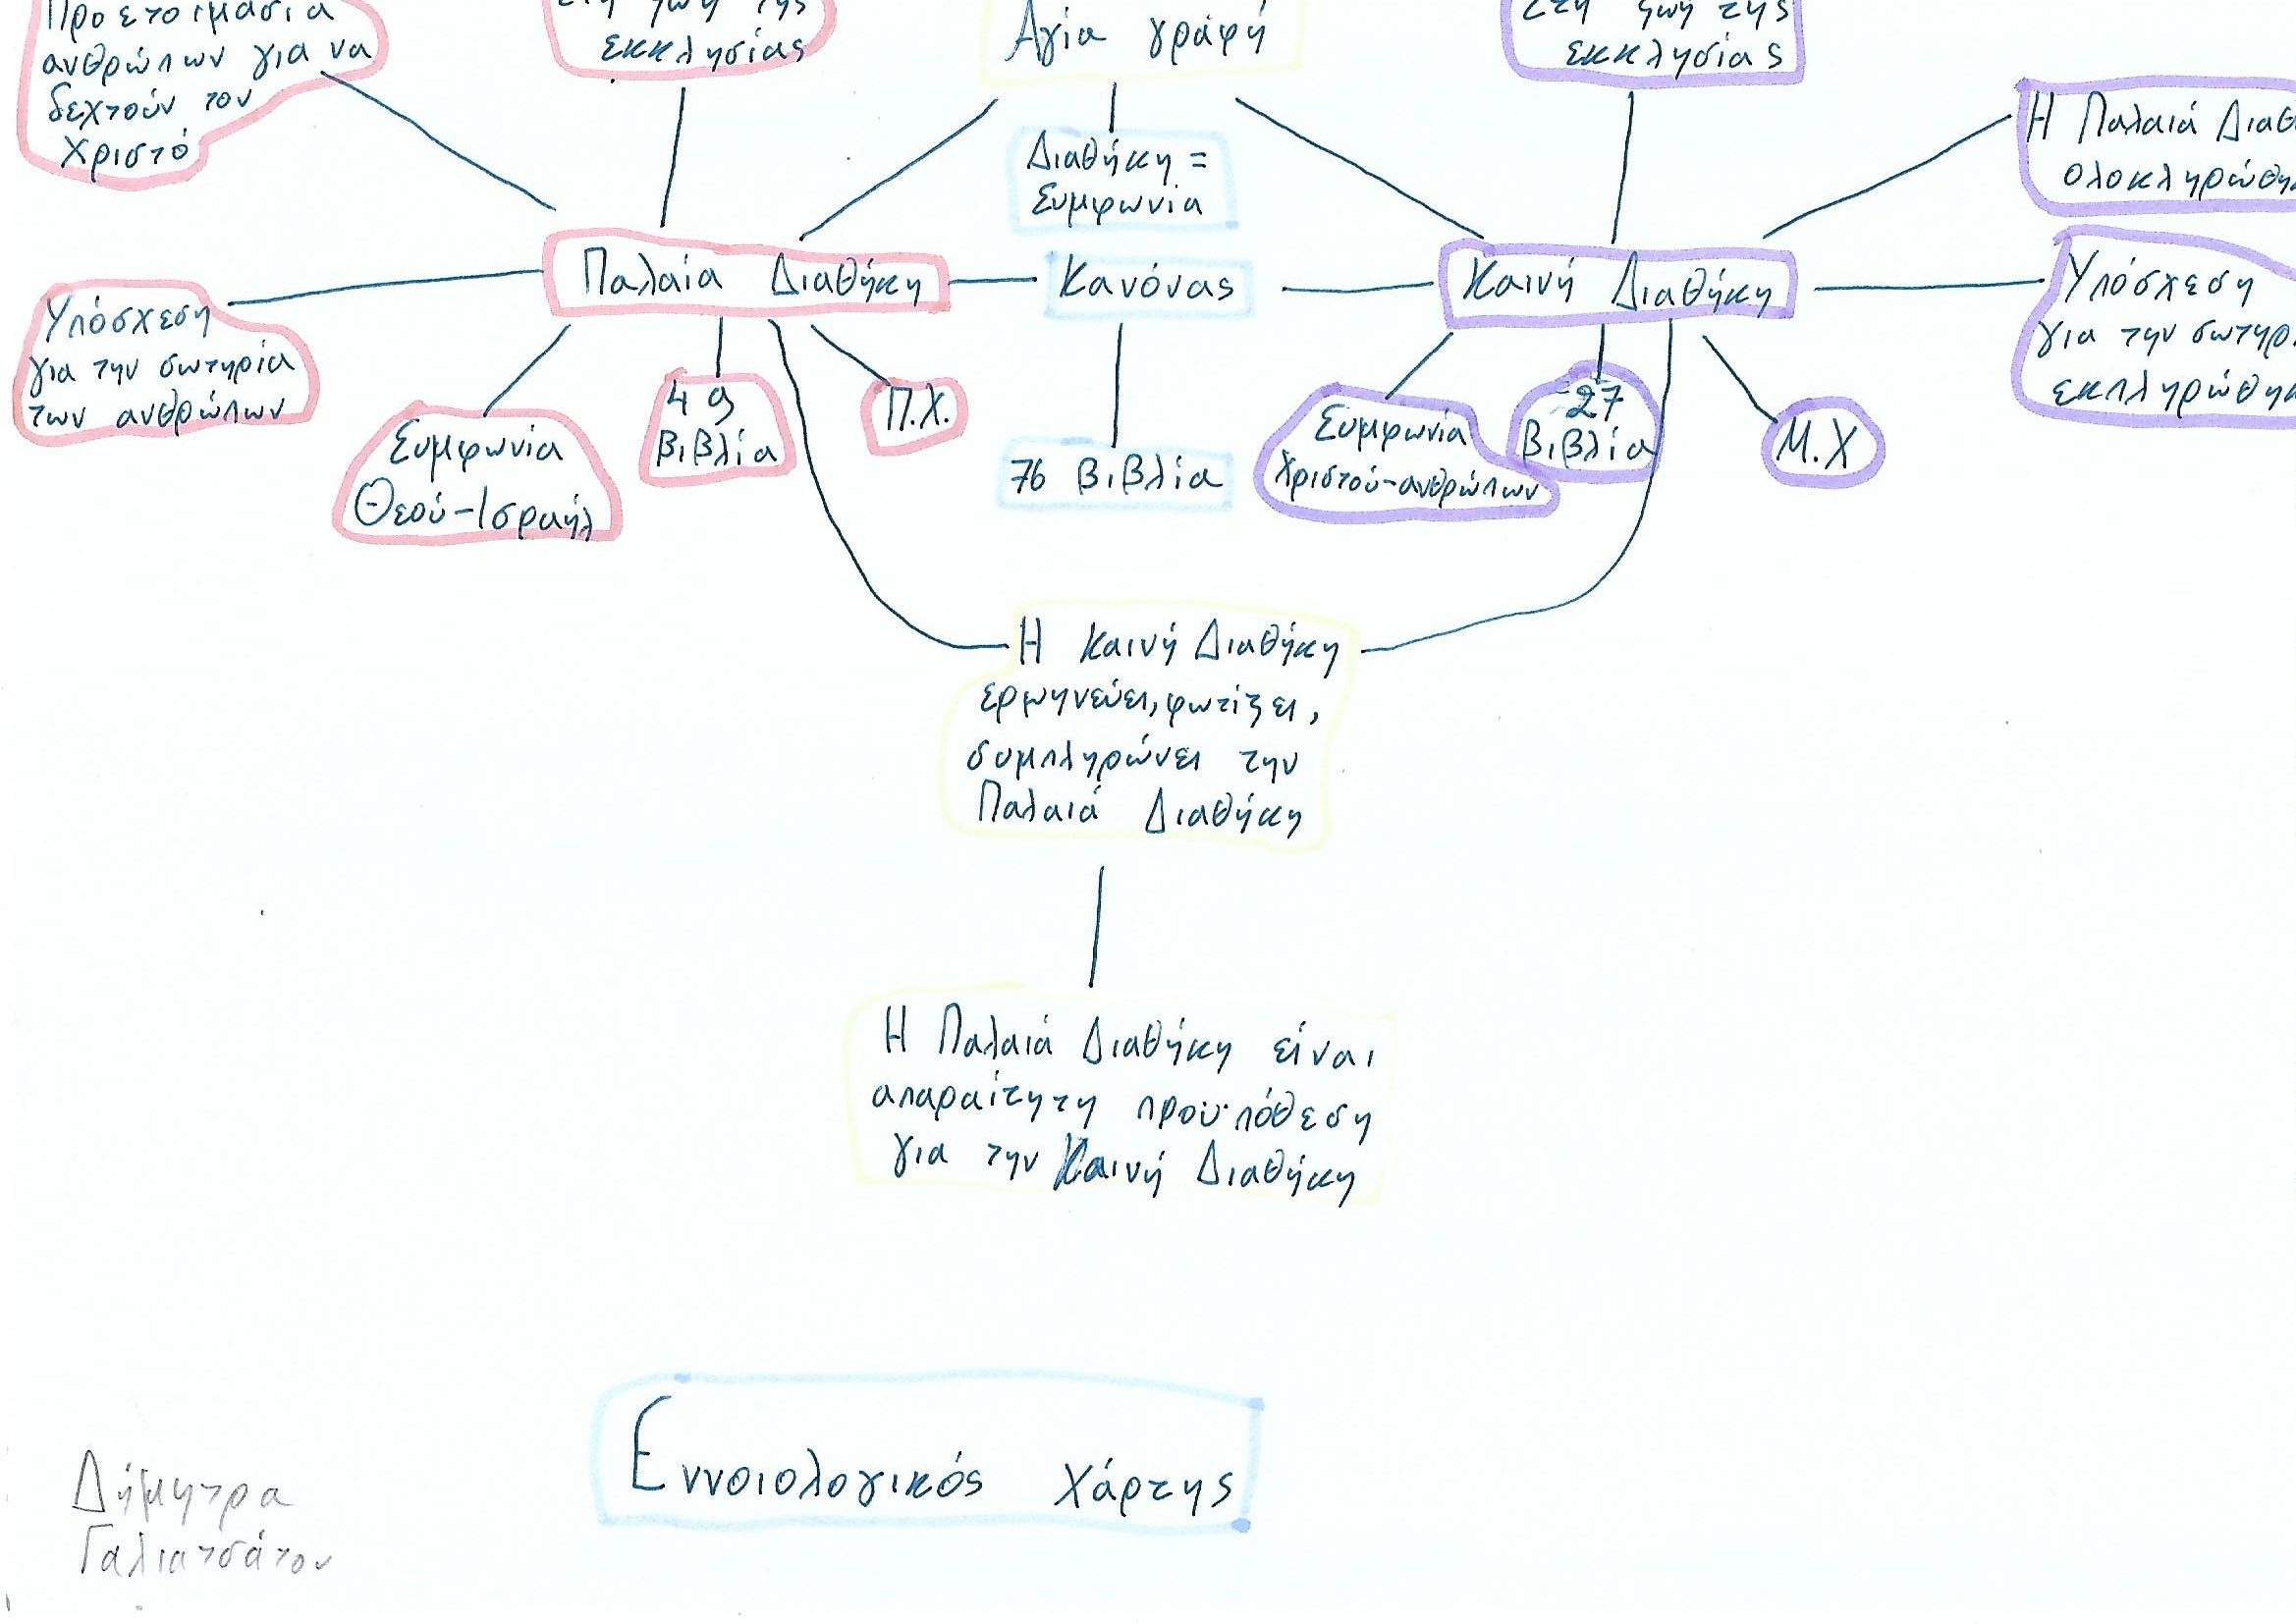 Προετοιμασία
ανθρώπων για να
δεχτούν τον
Χριστό
Στη ζωή της
εκκλησίας
Αγία γραφή
Στη ζωή της
εκκλησίας
Διαθήκη =
Συμφωνία
Η Παλαιά Διαθ
ολοκληρώθη
Παλαία Διαθήκη
Κανόνας
Καινή Διαθήκη
Υπόσχεση
για την σωτηρία
των ανθρώπων
Υπόσχεση
για την σωτηρ
εκπληρώθη
Συμφωνία
Θεού-Ισραήλ
49
βιβλία
Π.Χ.
76 βιβλία
Συμφωνία
Χριστού-ανθρώπων
27
βιβλία
Μ.Χ
Η Καινή Διαθήκη
ερμηνεύει, φωτίζει,
συμπληρώνει την
Παλαιά Διαθήκη
Η Παλαιά Διαθήκη είναι
απαραίτητη προϋπόθεση
για την Καινή Διαθήκη
Εννοιολογικός χάρτης
Δήμητρα
Γαλιατσάτου